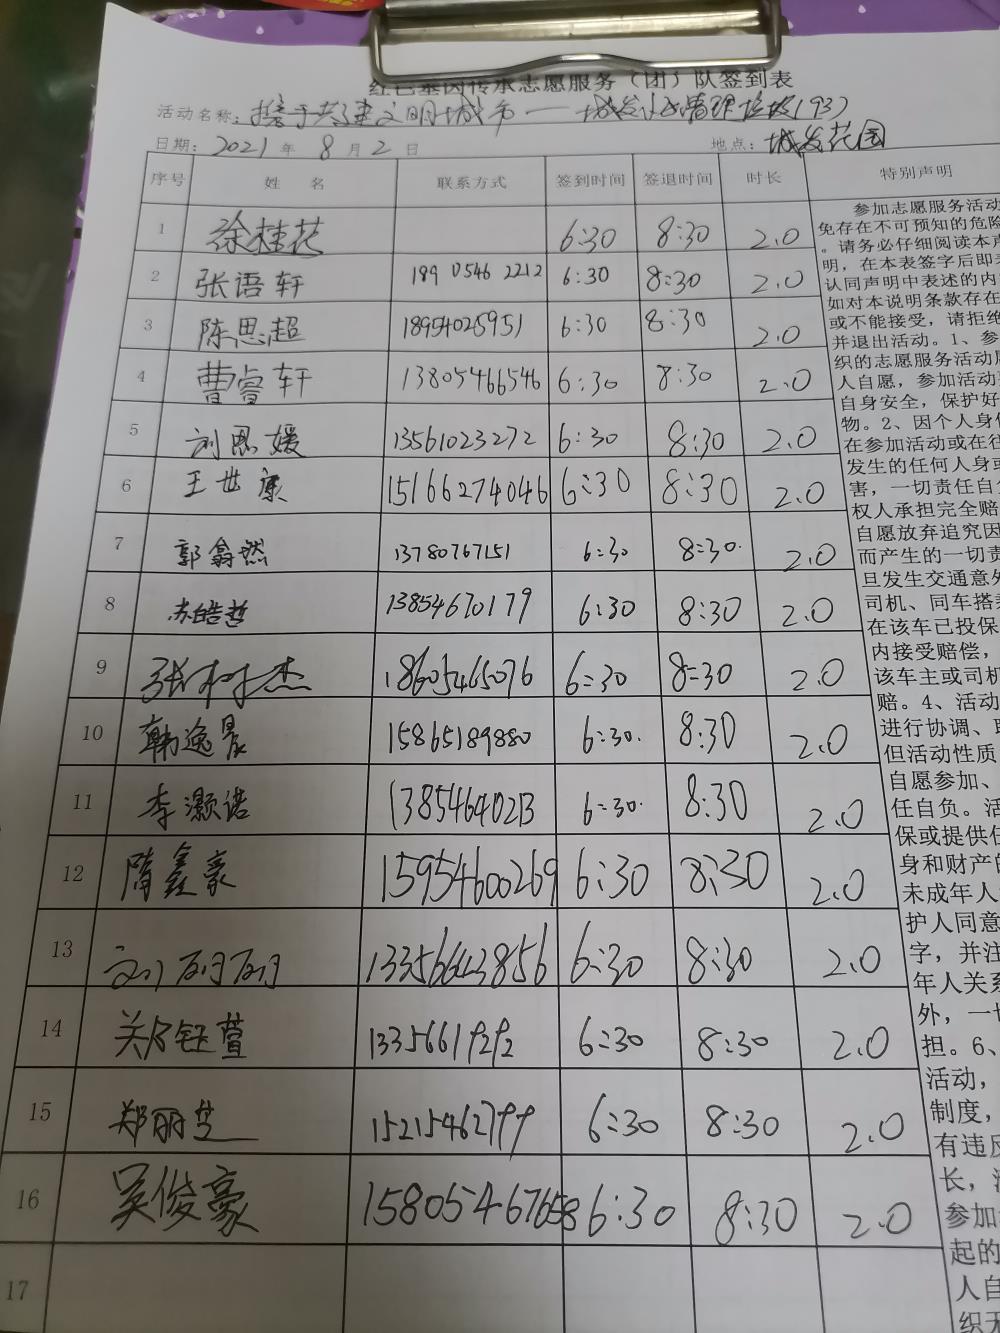 红色基因传承志愿服务(团)队签到表
活动名称: 携手共建文明城市——城发社区清理垃圾(93)
日期: 2021 年 8 月 2 日 地点: 城发花园
序号 姓 名 联系方式 签到时间 签退时间 时长 特别声明
1 徐桂花 6:30 8:30 2.0
2 张语轩 189 0546 2212 6:30 8:30 2.0
3 陈思超 18954025951 6:30 8:30 2.0
4 曹睿轩 13805466546 6:30 8:30 2.0
5 刘思媛 13561023272 6:30 8:30 2.0
6 王世康 15166274046 6:30 8:30 2.0
7 郭翕然 13780767151 6:30 8:30 2.0
8 苏皓哲 13854670179 6:30 8:30 2.0
9 张树杰 18605465076 6:30 8:30 2.0
10 韩逸晨 15865189880 6:30 8:30 2.0
11 李灏诺 13854640213 6:30 8:30 2.0
12 隋鑫豪 15954600269 6:30 8:30 2.0
13 刘萌萌 13356643856 6:30 8:30 2.0
14 关钰萱 6:30 8:30 2.0
15 郑丽芝 6:30 8:30 2.0
16 吴俊豪 15805467658 6:30 8:30 2.0
17
参加志愿服务活动
免存在不可预知的危险
。请务必仔细阅读本声
明,在本表签字后即表
认同声明中表述的内
如对本说明条款存在
或不能接受,请拒绝
并退出活动。1、参
织的志愿服务活动
人自愿,参加活动
自身安全,保护好
物。2、因个人身
在参加活动或在往
发生的任何人身或
害,一切责任自负
权人承担完全赔
自愿放弃追究因
而产生的一切责
旦发生交通意外
司机、同车搭乘
在该车已投保
内接受赔偿,
该车主或司机
赔。4、活动
进行协调、
但活动性质
自愿参加、
任自负。活
保或提供任
身和财产的
未成年人
护人同意
字,并注
年人关系
外,一切
担。6、
活动,
制度,
有违反
长,
参加
起的
人自
织无